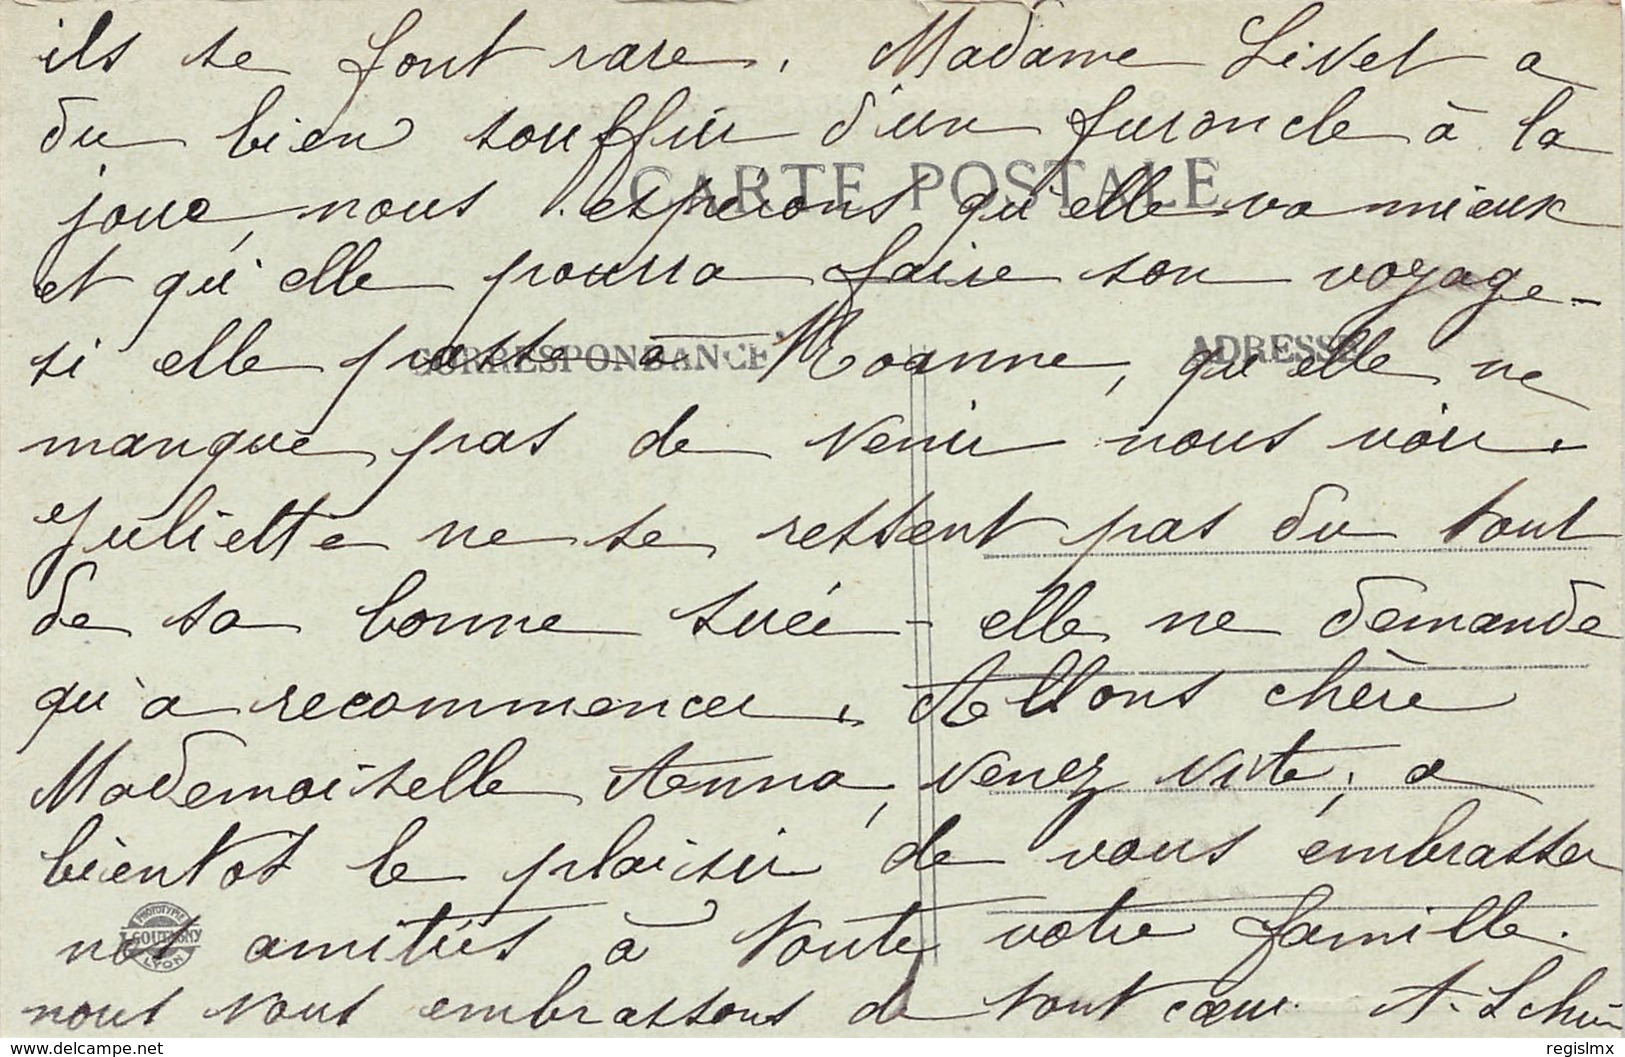 ils se font rare. Madame Livet a
du bien souffrir d'un furoncle à la
CARTE POSTALE
joue, nous espérons qu'elle va mieux
et qu'elle pourra faire son voyage -
CORRESPONDANCE ADRESSE
si elle passe à Roanne, qu'elle ne
manque pas de venir nous voir.
Juliette ne se ressent pas du tout
de sa bonne suée - elle ne demande
qu'a recommencer. Allons chère
Mademoiselle Anna, venez vite, a
bientôt le plaisir de vous embrasser
PHOTOTYPIE
GOUTAGNY
LYON
nos amitiés à toute votre famille.
nous vous embrassons de tout cœur A.
delcampe.net
regislmx